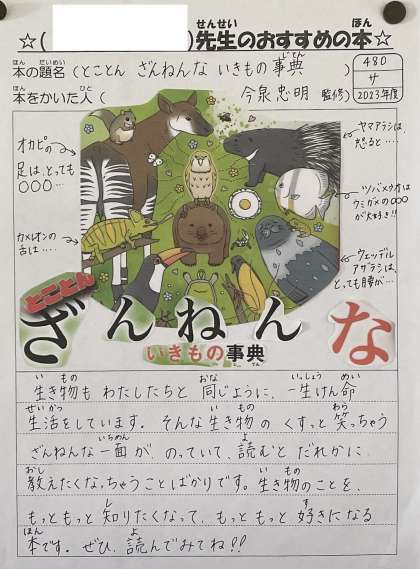 ☆( )先生のおすすめの本☆
本の題名(とことん ざんねんな いきもの事典)
本をかいた人( 今泉忠明 監修)
480
サ
2023年度
オカピの
足は、とっても
○○○…
カメレオンの
舌は……
ヤマアラシは
怒ると…
ツバメウオは
ウミガメの○○○
が大好き!!
ウェッデル
アザラシは、
とっても腰が…
とことん
ざんねんな
いきもの事典
生き物も わたしたちと 同じように、一生けん命
生活をしています。そんな生き物の くすっと 笑っちゃう
ざんねんな一面が のっていて、読むと だれかに
教えたくなっちゃうことばかりです。生き物のことを、
もっともっと 知りたくなって、もっともっと 好きになる
本です。ぜひ、読んでみてね!!